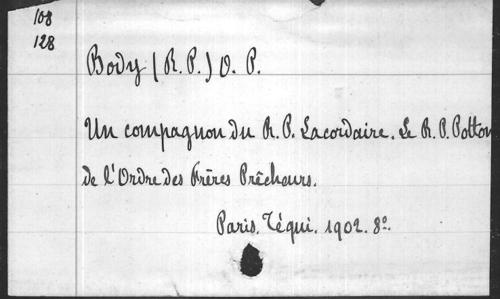 108
128
Body (R.P.) O.P.
Un compagnon du R.P. Lacordaire. Le R.P. Potton
de l'Ordre des Frères Prêcheurs.
Paris. Téqui. 1902. 8º.